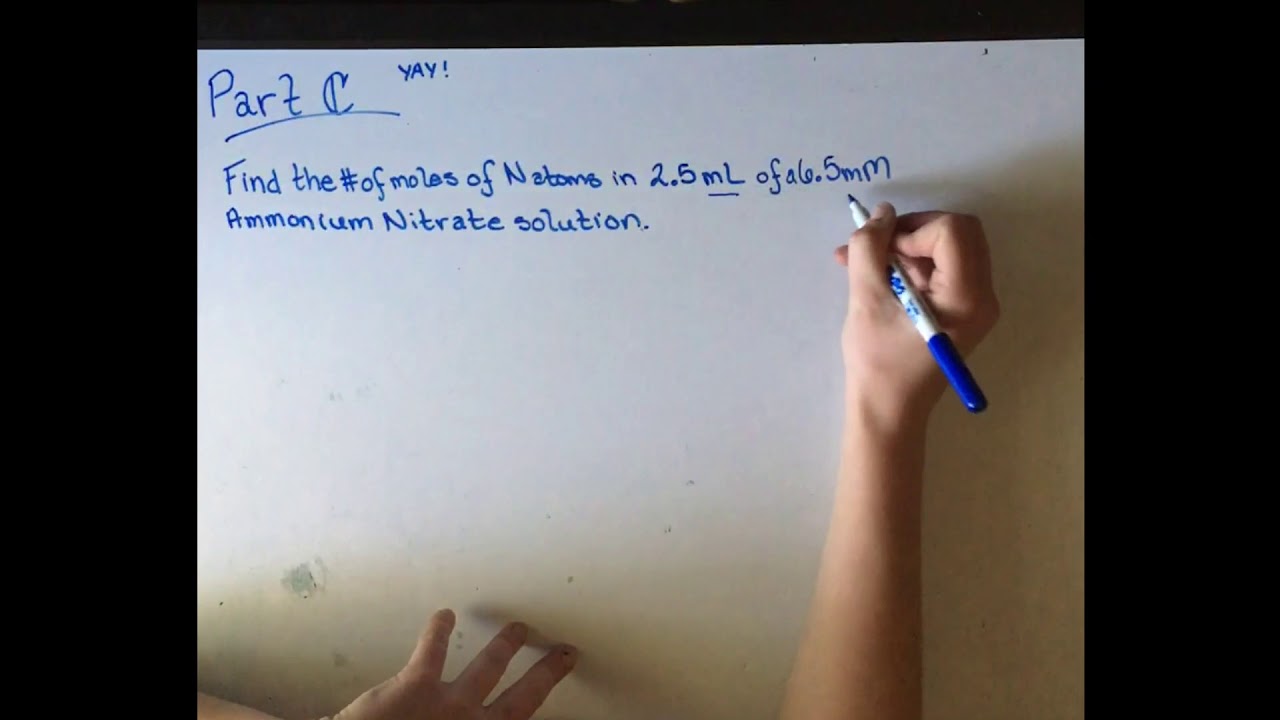 Part C
YAY!
Find the # of moles of N atoms in 2.5 mL of a 6.5 mM
Ammonium Nitrate solution.